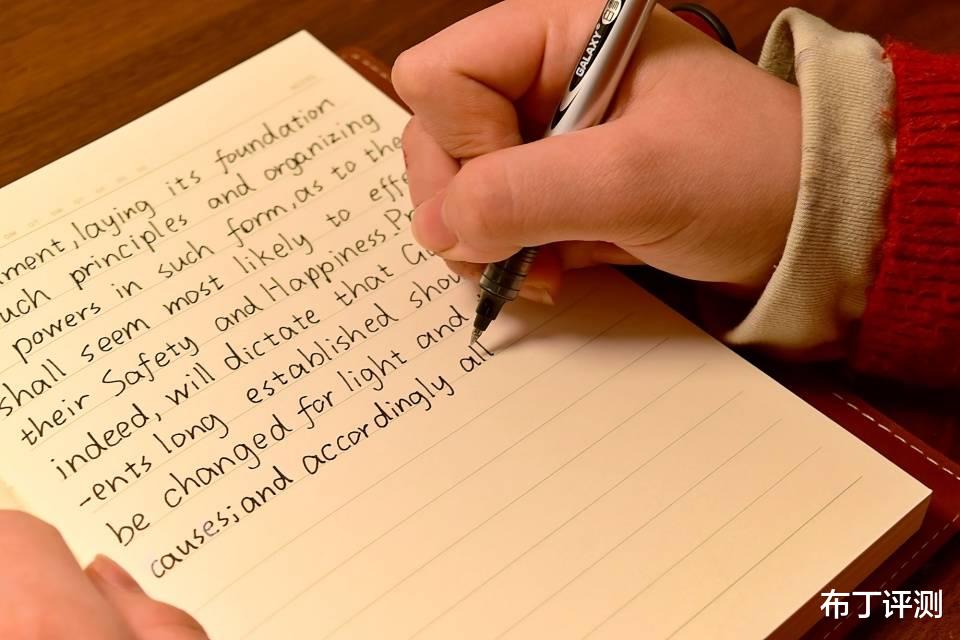 its foundation
ment, laying
uch principles and organizing
powers in such form, as to the
shall seem most likely to effe
their Safety and Happiness. Pr
indeed, will dictate that G
-ents long established shou
be changed for light and
causes; and accordingly all
GALAXY
布丁评测